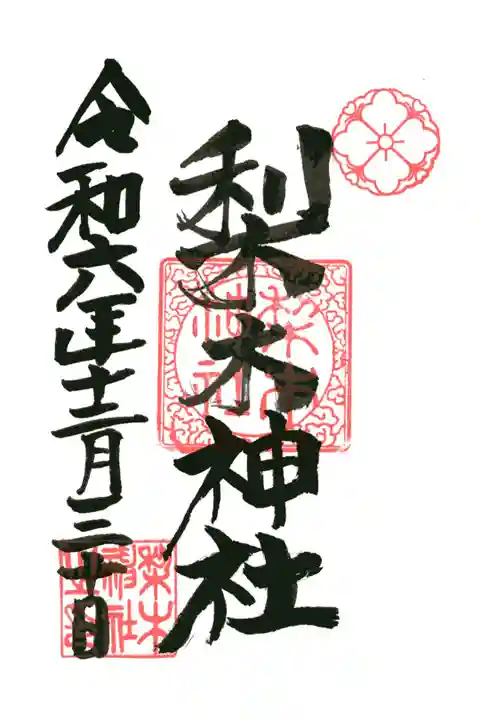 梨木神社
令和六年十二月二十日
梨木神社